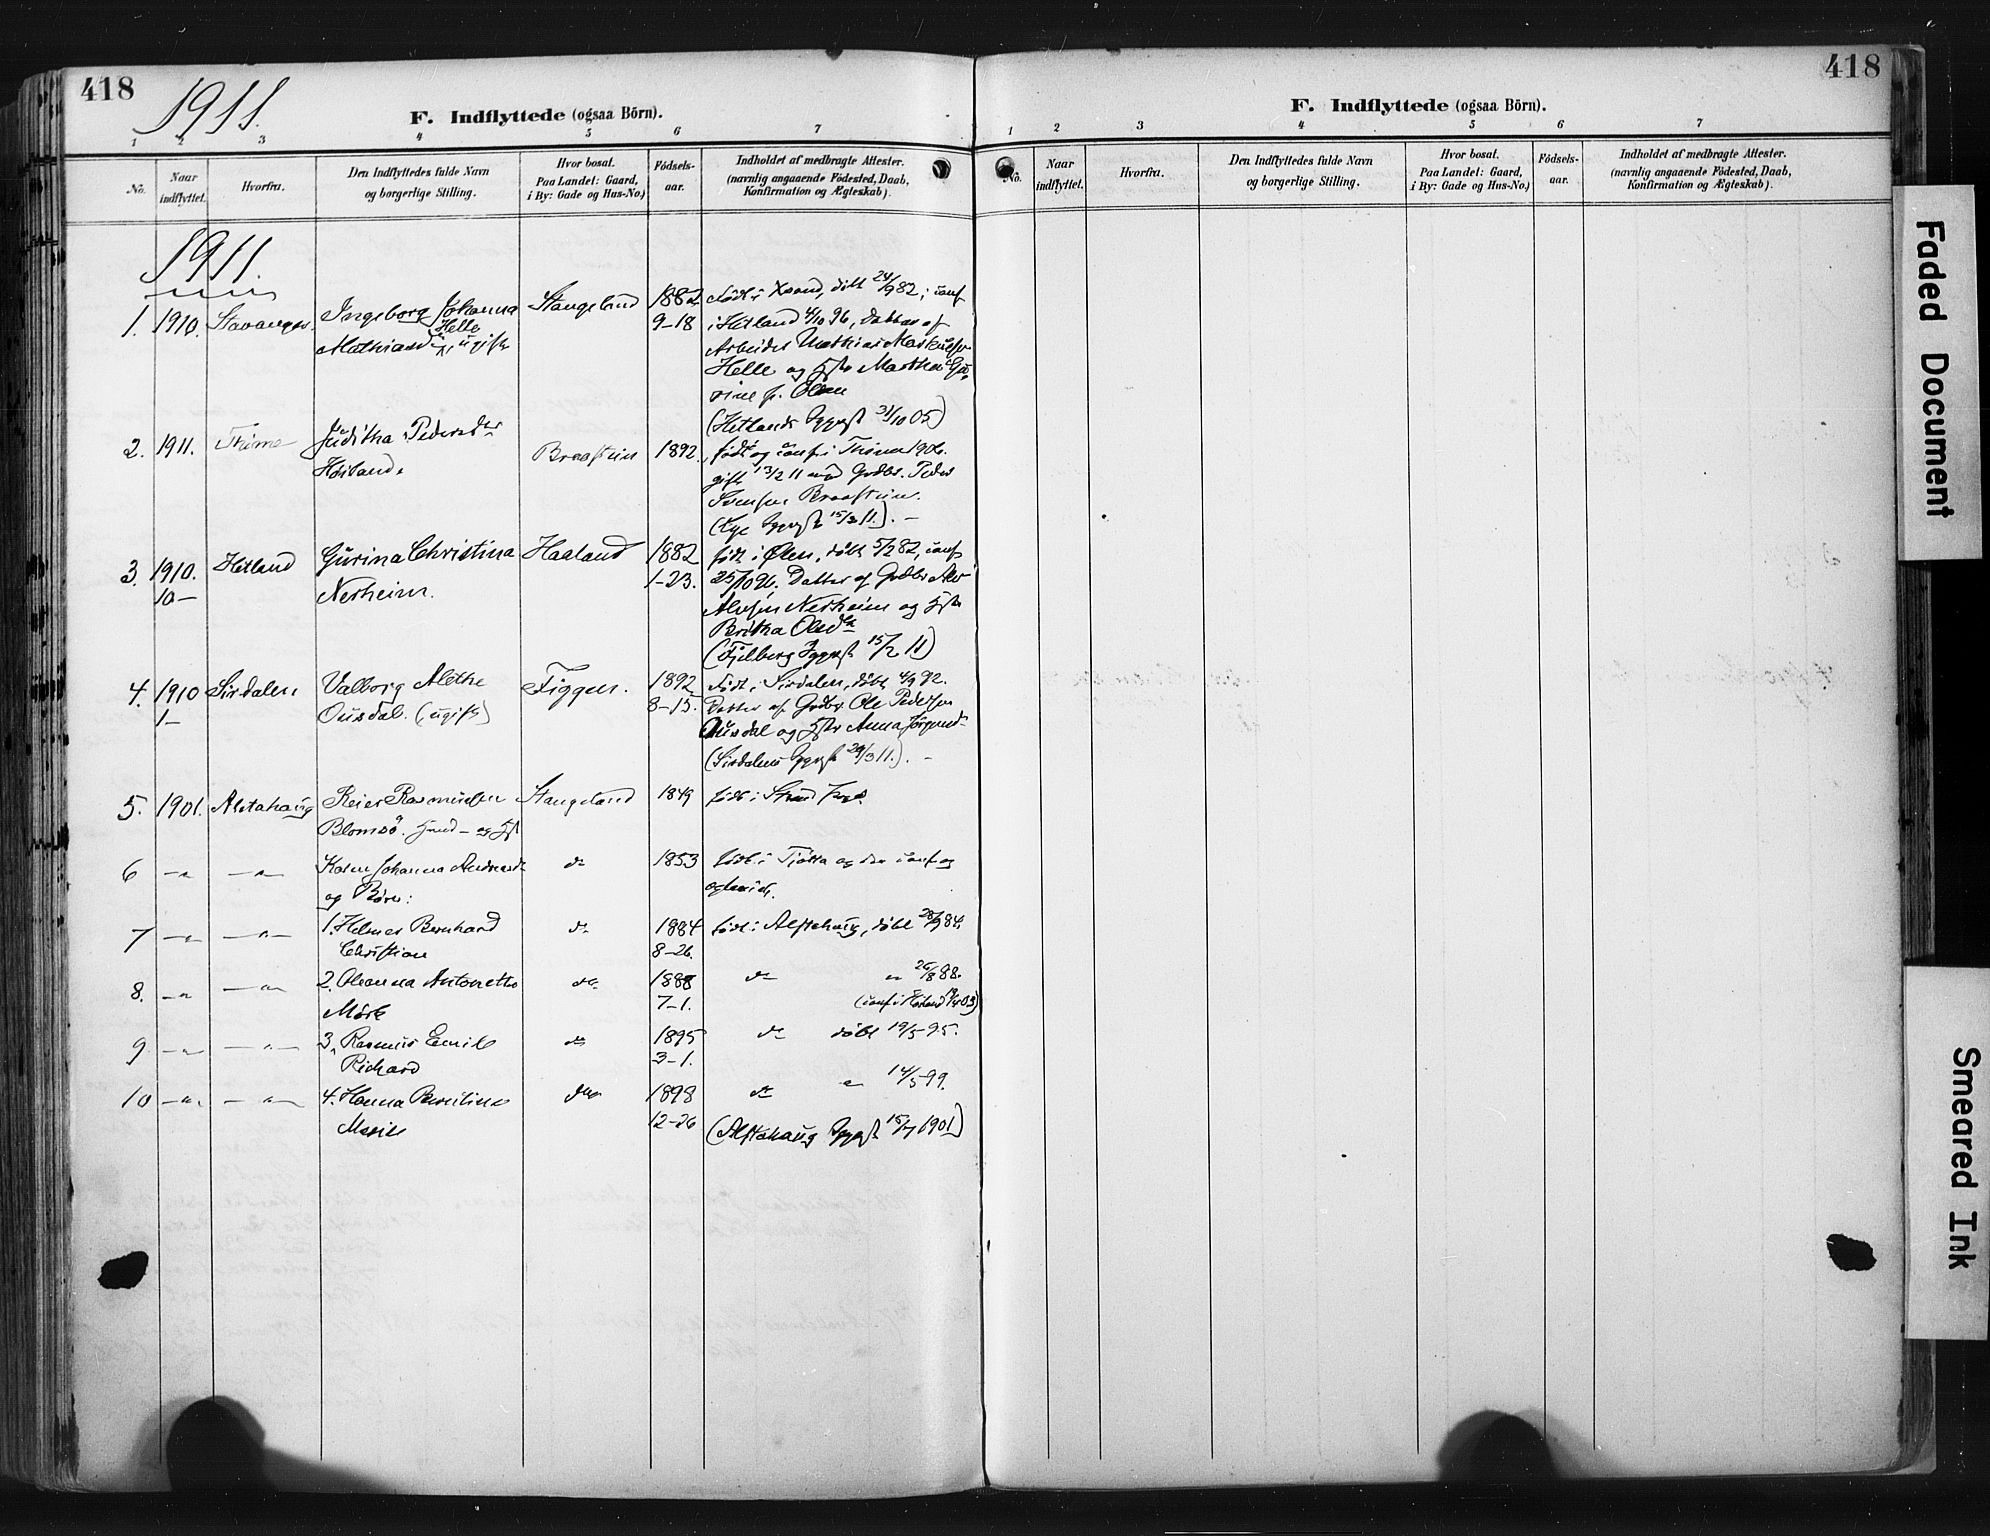 418
1911.
F. Indflyttede (ogsaa Börn).
1 2 3 4 5 6 7
No.
Naar indflyttet.
Hvorfra.
Den Indflyttedes fulde Navn
og borgerlige Stilling.
Hvor bosat.
Paa Landet: Gaard,
i By: Gade og Hus-No.)
Födsels-
aar.
Indholdet af medbragte Attester.
(navnlig angaaende Födested, Daab,
Konfirmation og Ægteskab).
1911.
1. 1910. Stavanger. Ingeborg Johanna Stangeland 1882 født i, døbt 24/9 82; conf
Helle
Mathiasd, ugift 9-18 i Hetland 4/10 96, Datter af
Arbeider Mathias
Helle og Hstr Martha
p. Olsen
(Hetlands 31/10 05)
2. 1911. Thime Juditha Pedersdtr Braastein 1892. født og conf i Thime 1906.
Høiland. gift 13/2 11 med Grdbr. Peder
Svensen Braastein.
(Lye 15/3 11). -
3. 1910. Hetland Gurina Christina Haaland 1882 født i Ølen, døbt 5/2 82, conf
10- Nerheim. 1-23. 25/10 96. Datter af Grdbr
Nerheim og Hstr
Britha Olsdtr
(Fjelberg 15/2 11)
4. 1910 Sirdalen Valborg Alethe Figgen. 1892 Født i Sirdalen, døbt 4/9 92.
1- Ousdal. (ugift) 8-15. Datter af Grdbr Ole Pedersen
Ousdal og Hstr Anna
(Sirdalens 29/3 11). -
5. 1901. Alstahaug Reier Rasmussen Stangeland 1849 født i Strand
Blomsø.
6 -"- -"- Karen Johanna do 1853 født i Tjøtta og der conf og
og Børn:
7 -"- -"- 1. Helmer Bernhard do 1884 født i Alstahaug, døbt 28/9 84.
Christian 8-26.
8. -"- -"- 2. Oleanna Antonette do 1888 do " 26/8 88.
Mørk 7-1. (conf i Høiland 03)
9 -"- -"- 3. Rasmus Emil do 1895 do døbt 19/5 95.
Richard 3-1.
10 -"- -"- 4. Hanna Berntine do 1898 do " 14/5 99.
Marie 12-26 (Alstahaug 15/7 1901)
418
F. Indflyttede (ogsaa Börn).
1 2 3 4 5 6 7
No.
Naar
indflyttet.
Hvorfra.
Den Indflyttedes fulde Navn
og borgerlige Stilling.
Hvor bosat.
Paa Landet: Gaard,
i By: Gade og Hus-No.)
Födsels-
aar.
Indholdet af medbragte Attester.
(navnlig angaaende Födested, Daab,
Konfirmation og Ægteskab).
Faded Document
Smeared Ink